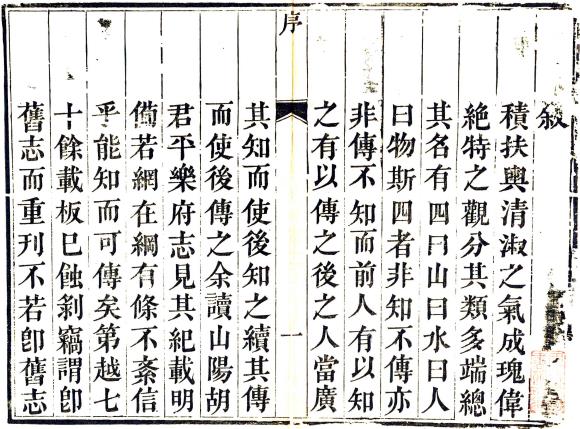 敘
積扶輿清淑之氣成瑰偉
絕特之觀分其類多端總
其名有四曰山曰水曰人
曰物斯四者非知不傳亦
非傳不知而前人有以知
之有以傳之後之人當廣
序
一
其知而使後知之續其傳
而使後傳之余讀山陽胡
君平樂府志見其紀載明
備若網在綱有條不紊信
乎能知而可傳矣第越七
十餘載板已蝕剝竊謂卽
舊志而重刊不若卽舊志